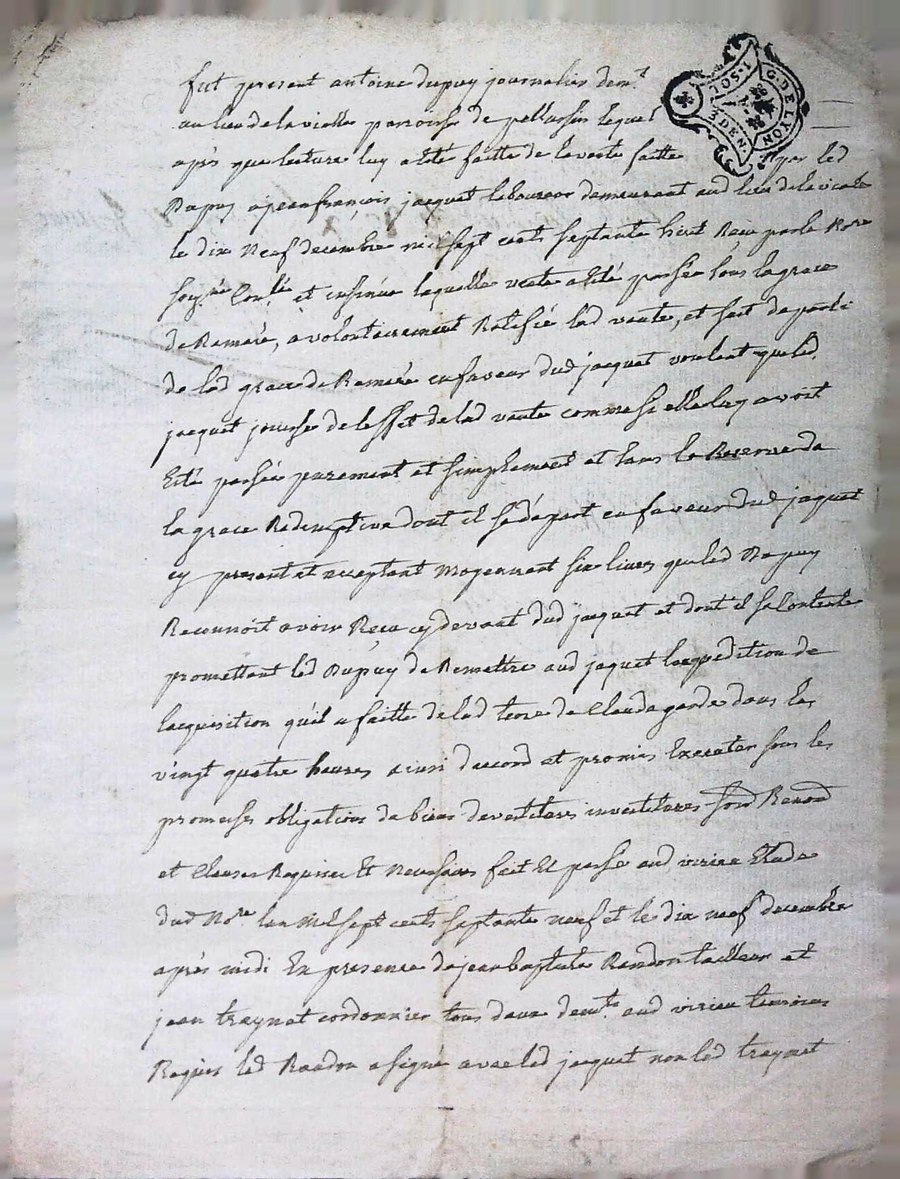 fut present antoine dupuy journalier dem.t
au lieu de la vialle parroisse de pellussin lequel
G. DE LYON
1. SOL.
3 DEN.
après que lecture luy a été faitte de la vente faitte par led
Dupuy a jean françois jacquet laboureur demeurant aud lieu de la viale
le dix neuf decembre mil sept cents septante huit Recu par le No.re
soy.né et insinué laquelle vente a été passée sous la grace
de Remeré, a volontairement Ratifié lad vante, et fait de parti
de lad grace de Remeré en faveur dud jacquet voulant que led
jacquet jouisse de leffet de lad vante comme si elle luy avoit
Eté passée purement et simplement et sans la Reserve de
la grace Redemptive dont il se départ en faveur dud jaquet
cy present et acceptant moyennant six livres que led Dupuy
Reconnoit avoir Reçu cy devant dud jacquet et dont il se contente
promettant led Dupuy de Remettre aud jaquet lexpedition de
lacquisition qu'il a faitte de lad terre de Claude garde dans les
vingt quatre heures ainsi daccord et promis Executer sous les
promesses obligations de biens devestitures investitures
et clauses Requises Et Necessaires fait Et passé aud virieu Etude
dud No.re lan Mil sept cents septante neuf et le dix neuf decembre
après midi En presence de jean baptiste Randon tailleur et
jean traynet cordonnier tous deux dem.ts aud virieu temoins
Requis led Randon a signé avec led jacquet non led traynet